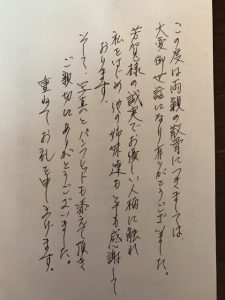 この度は両親の散骨につきましては、
大変御世話になり有りがとうございました。
芳賀様の誠実でお優しい人柄に触れ
私をはじめ他の姉妹達も皆感謝して
おります。
そして、写真とパンフレットも添えて頂き
ご親切にありがとうございました。
重ねてお礼を申し上げます。